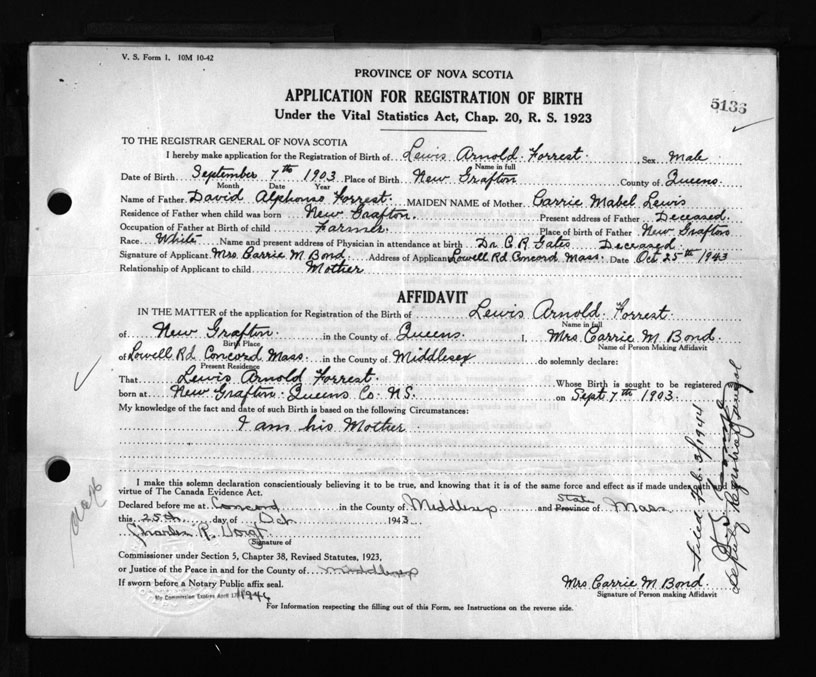 V. S. Form 1. 10M 10-42
PROVINCE OF NOVA SCOTIA
APPLICATION FOR REGISTRATION OF BIRTH
5136
Under the Vital Statistics Act, Chap. 20, R. S. 1923
TO THE REGISTRAR GENERAL OF NOVA SCOTIA
I hereby make application for the Registration of Birth of Lewis Arnold Forrest Sex Male
Name in full
Date of Birth September 7th 1903 Place of Birth New Grafton County of Queens
Month Date Year
Name of Father David Alphonso Forrest MAIDEN NAME of Mother Carrie Mabel Lewis
Residence of Father when child was born New Grafton Present address of Father Deceased
Occupation of Father at Birth of child Farmer Place of birth of Father New Grafton
Race White Name and present address of Physician in attendance at birth Dr. C. R. Gates Deceased
Signature of Applicant Mrs Carrie M Bond Address of Applicant Lowell Rd Concord Mass. Date Oct 25th 1943
Relationship of Applicant to child Mother
AFFIDAVIT
IN THE MATTER of the application for Registration of the Birth of Lewis Arnold Forrest
Name in full
of New Grafton in the County of Queens I, Mrs Carrie M Bond
Birth Place Name of Person Making Affidavit
of Lowell Rd Concord Mass. in the County of Middlesex do solemnly declare:
Present Residence
That Lewis Arnold Forrest Whose Birth is sought to be registered
born at New Grafton Queens Co. N.S. on Sept 7th 1903
My knowledge of the fact and date of such Birth is based on the following Circumstances:
I am his Mother
I make this solemn declaration conscientiously believing it to be true, and knowing that it is of the same force and effect as if made under oath and by
virtue of The Canada Evidence Act.
Declared before me at Concord in the County of Middlesex and Province of State Mass
this 25th day of Oct 1943
Charles R.
Signature of
Commissioner under Section 5, Chapter 38, Revised Statutes, 1923,
or Justice of the Peace in and for the County of Middlesex
If sworn before a Notary Public affix seal.
My Commission Expires April 1946
Mrs Carrie M Bond
Signature of Person making Affidavit
For Information respecting the filling out of this Form, see Instructions on the reverse side.
Filed Feb. 3/1944
Deputy Registrar General